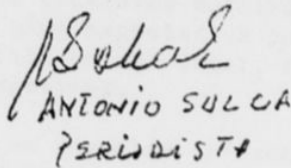 ANTONIO SULCA
PERIODISTA